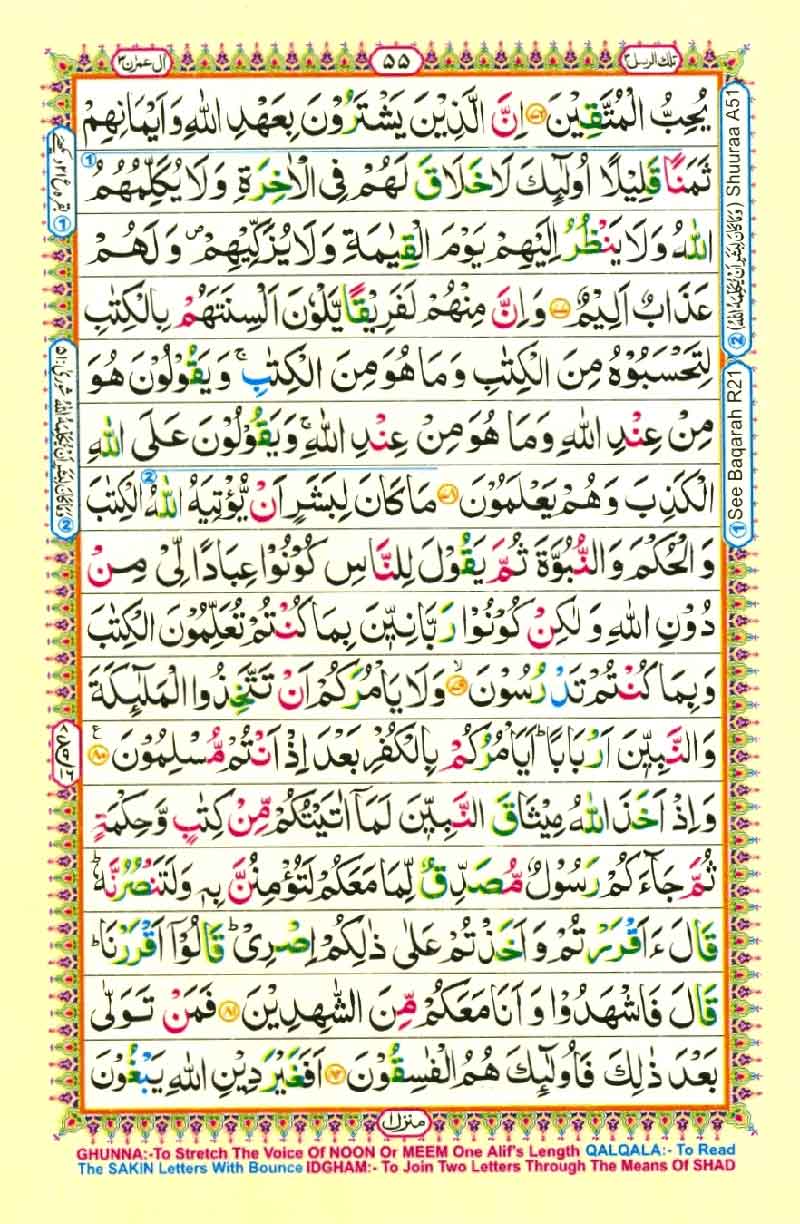 تلك الرسل ٣
٥٥
ال عمرٰن ٣
يُحِبُّ الْمُتَّقِيْنَ ۝٧٦ اِنَّ الَّذِيْنَ يَشْتَرُوْنَ بِعَهْدِ اللّٰهِ وَاَيْمَانِهِمْ
ثَمَنًا قَلِيْلًا اُولٰٓئِكَ لَا خَلَاقَ لَهُمْ فِى الْاٰخِرَةِ وَلَا يُكَلِّمُهُمُ ①
اللّٰهُ وَلَا يَنْظُرُ اِلَيْهِمْ يَوْمَ الْقِيٰمَةِ وَلَا يُزَكِّيْهِمْ ۖ وَلَهُمْ
عَذَابٌ اَلِيْمٌ ۝٧٧ وَاِنَّ مِنْهُمْ لَفَرِيْقًا يَّلْوٗنَ اَلْسِنَتَهُمْ بِالْكِتٰبِ
لِتَحْسَبُوْهُ مِنَ الْكِتٰبِ وَمَا هُوَ مِنَ الْكِتٰبِ ۚ وَيَقُوْلُوْنَ هُوَ
مِنْ عِنْدِ اللّٰهِ وَمَا هُوَ مِنْ عِنْدِ اللّٰهِ ۚ وَيَقُوْلُوْنَ عَلَى اللّٰهِ
الْكَذِبَ وَهُمْ يَعْلَمُوْنَ ۝٧٨ مَا كَانَ لِبَشَرٍ اَنْ يُّؤْتِيَهُ اللّٰهُ الْكِتٰبَ ②
وَالْحُكْمَ وَالنُّبُوَّةَ ثُمَّ يَقُوْلَ لِلنَّاسِ كُوْنُوْا عِبَادًا لِّىْ مِنْ
دُوْنِ اللّٰهِ وَلٰكِنْ كُوْنُوْا رَبَّانِيّٖنَ بِمَا كُنْتُمْ تُعَلِّمُوْنَ الْكِتٰبَ
وَبِمَا كُنْتُمْ تَدْرُسُوْنَ ۝٧٩ ۙ وَلَا يَاْمُرَكُمْ اَنْ تَتَّخِذُوا الْمَلٰٓئِكَةَ
وَالنَّبِيّٖنَ اَرْبَابًا ؕ اَيَاْمُرُكُمْ بِالْكُفْرِ بَعْدَ اِذْ اَنْتُمْ مُّسْلِمُوْنَ ۝٨٠ ع
وَاِذْ اَخَذَ اللّٰهُ مِيْثَاقَ النَّبِيّٖنَ لَمَاۤ اٰتَيْتُكُمْ مِّنْ كِتٰبٍ وَّحِكْمَةٍ
ثُمَّ جَآءَكُمْ رَسُوْلٌ مُّصَدِّقٌ لِّمَا مَعَكُمْ لَتُؤْمِنُنَّ بِهٖ وَلَتَنْصُرُنَّهٗ ؕ
قَالَ ءَاَقْرَرْتُمْ وَاَخَذْتُمْ عَلٰى ذٰلِكُمْ اِصْرِىْ ؕ قَالُوْۤا اَقْرَرْنَا ؕ
قَالَ فَاشْهَدُوْا وَاَنَا مَعَكُمْ مِّنَ الشّٰهِدِيْنَ ۝٨١ فَمَنْ تَوَلّٰى
بَعْدَ ذٰلِكَ فَاُولٰٓئِكَ هُمُ الْفٰسِقُوْنَ ۝٨٢ اَفَغَيْرَ دِيْنِ اللّٰهِ يَبْغُوْنَ
منزل ١
② (وَمَا كَانَ لِبَشَرٍ اَنْ يُّكَلِّمَهُ اللّٰهُ) Shuuraa A51
① See Baqarah R21
② وَمَا كَانَ لِبَشَرٍ اَنْ يُّكَلِّمَهُ اللّٰهُ شورىٰ: ٥١
GHUNNA:-To Stretch The Voice Of NOON Or MEEM One Alif's Length QALQALA:- To Read
The SAKIN Letters With Bounce IDGHAM:- To Join Two Letters Through The Means Of SHAD